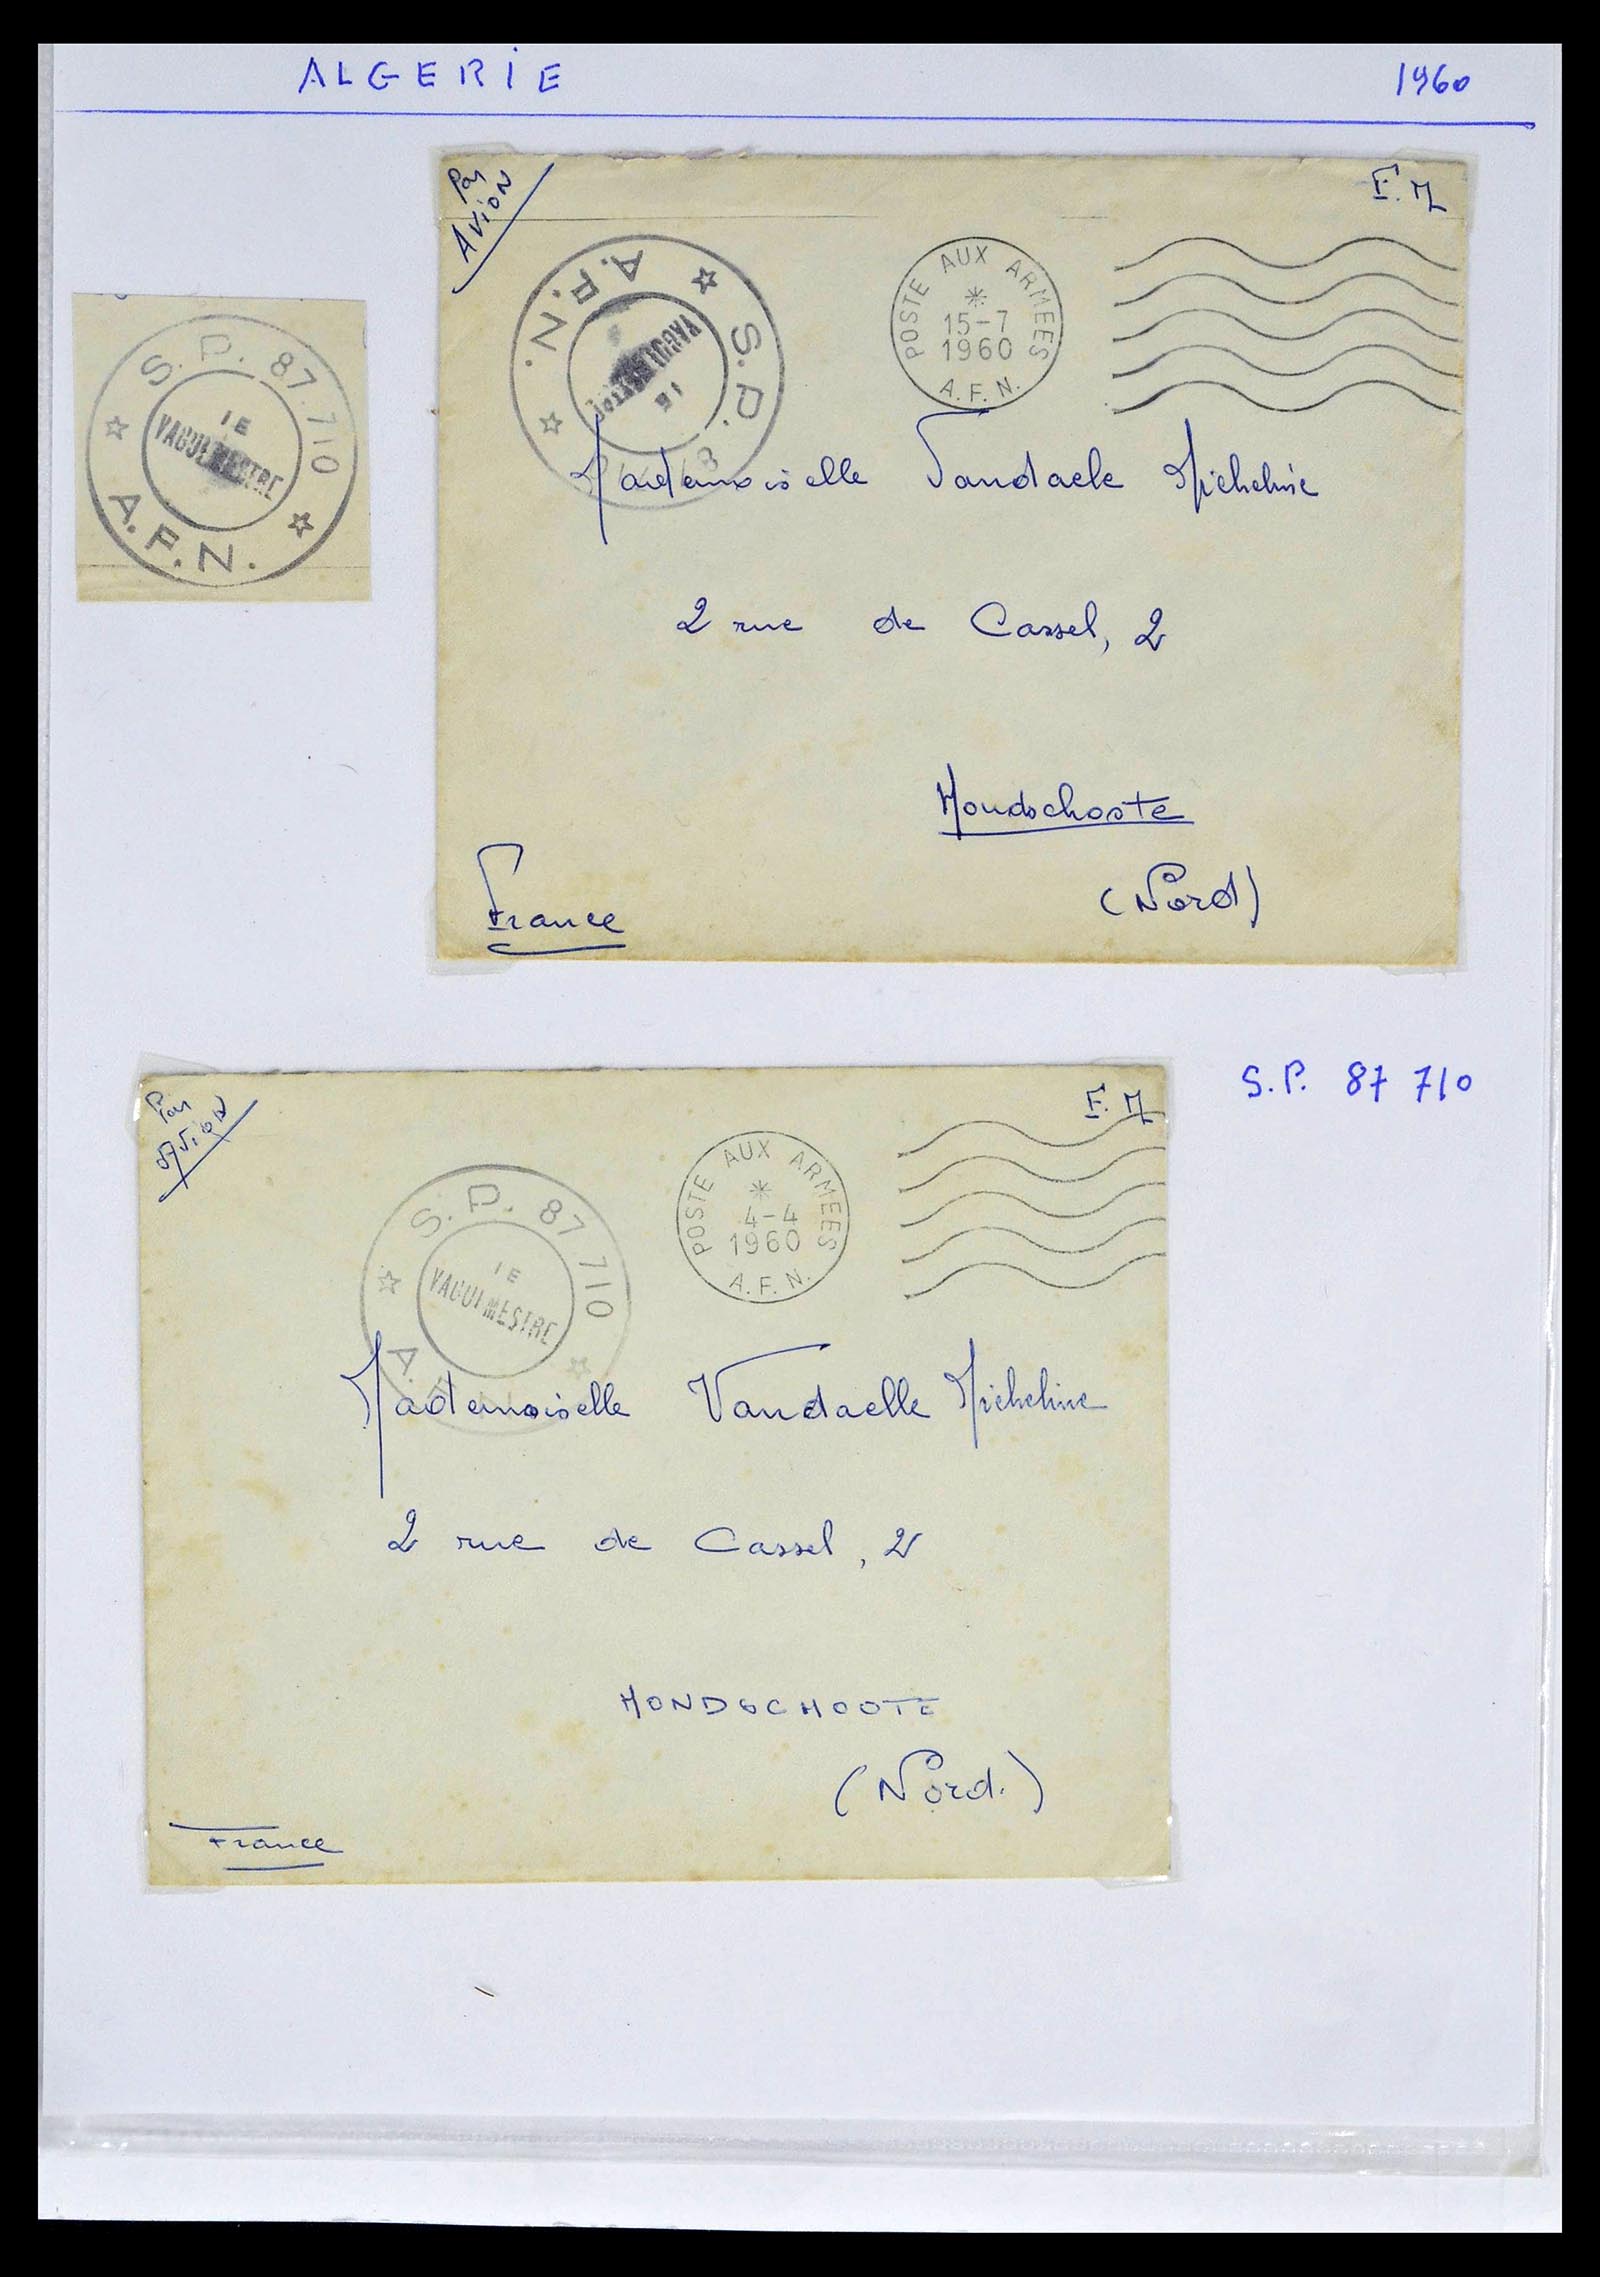 ALGERIE 1960
Par
AVION
F.M
S.P. 87.710
A.F.N.
LE
VAGUEMESTRE
A.F.N.
S.P. 8
LE
VAGUEMESTRE
POSTE AUX ARMEES
15-7
1960
A.F.N.
Mademoiselle Vandaele Micheline
2 rue de Cassel, 2
Hondschoote
(Nord)
France
S.P. 87 710
Par
AVION
F.M
S.P. 87 710
LE
VAGUEMESTRE
A.
POSTE AUX ARMEES
4-4
1960
A.F.N.
Mademoiselle Vandaelle Micheline
2 rue de Cassel, 2
HONDSCHOOTE
(Nord.)
France